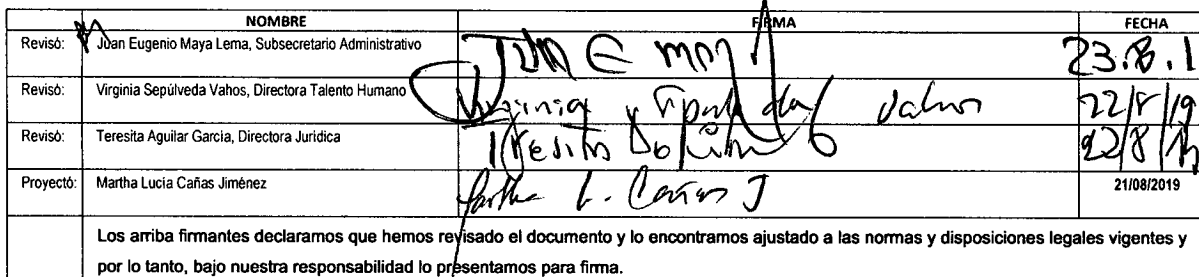 NOMBRE FIRMA FECHA
Revisó: Juan Eugenio Maya Lema, Subsecretario Administrativo 23.8.1
Revisó: Virginia Sepúlveda Vahos, Directora Talento Humano Virginia Sepulveda Vahos 22/8/19
Revisó: Teresita Aguilar García, Directora Jurídica 22/8/19
Proyectó: Martha Lucía Cañas Jiménez Martha L. Cañas J 21/08/2019
Los arriba firmantes declaramos que hemos revisado el documento y lo encontramos ajustado a las normas y disposiciones legales vigentes y
por lo tanto, bajo nuestra responsabilidad lo presentamos para firma.